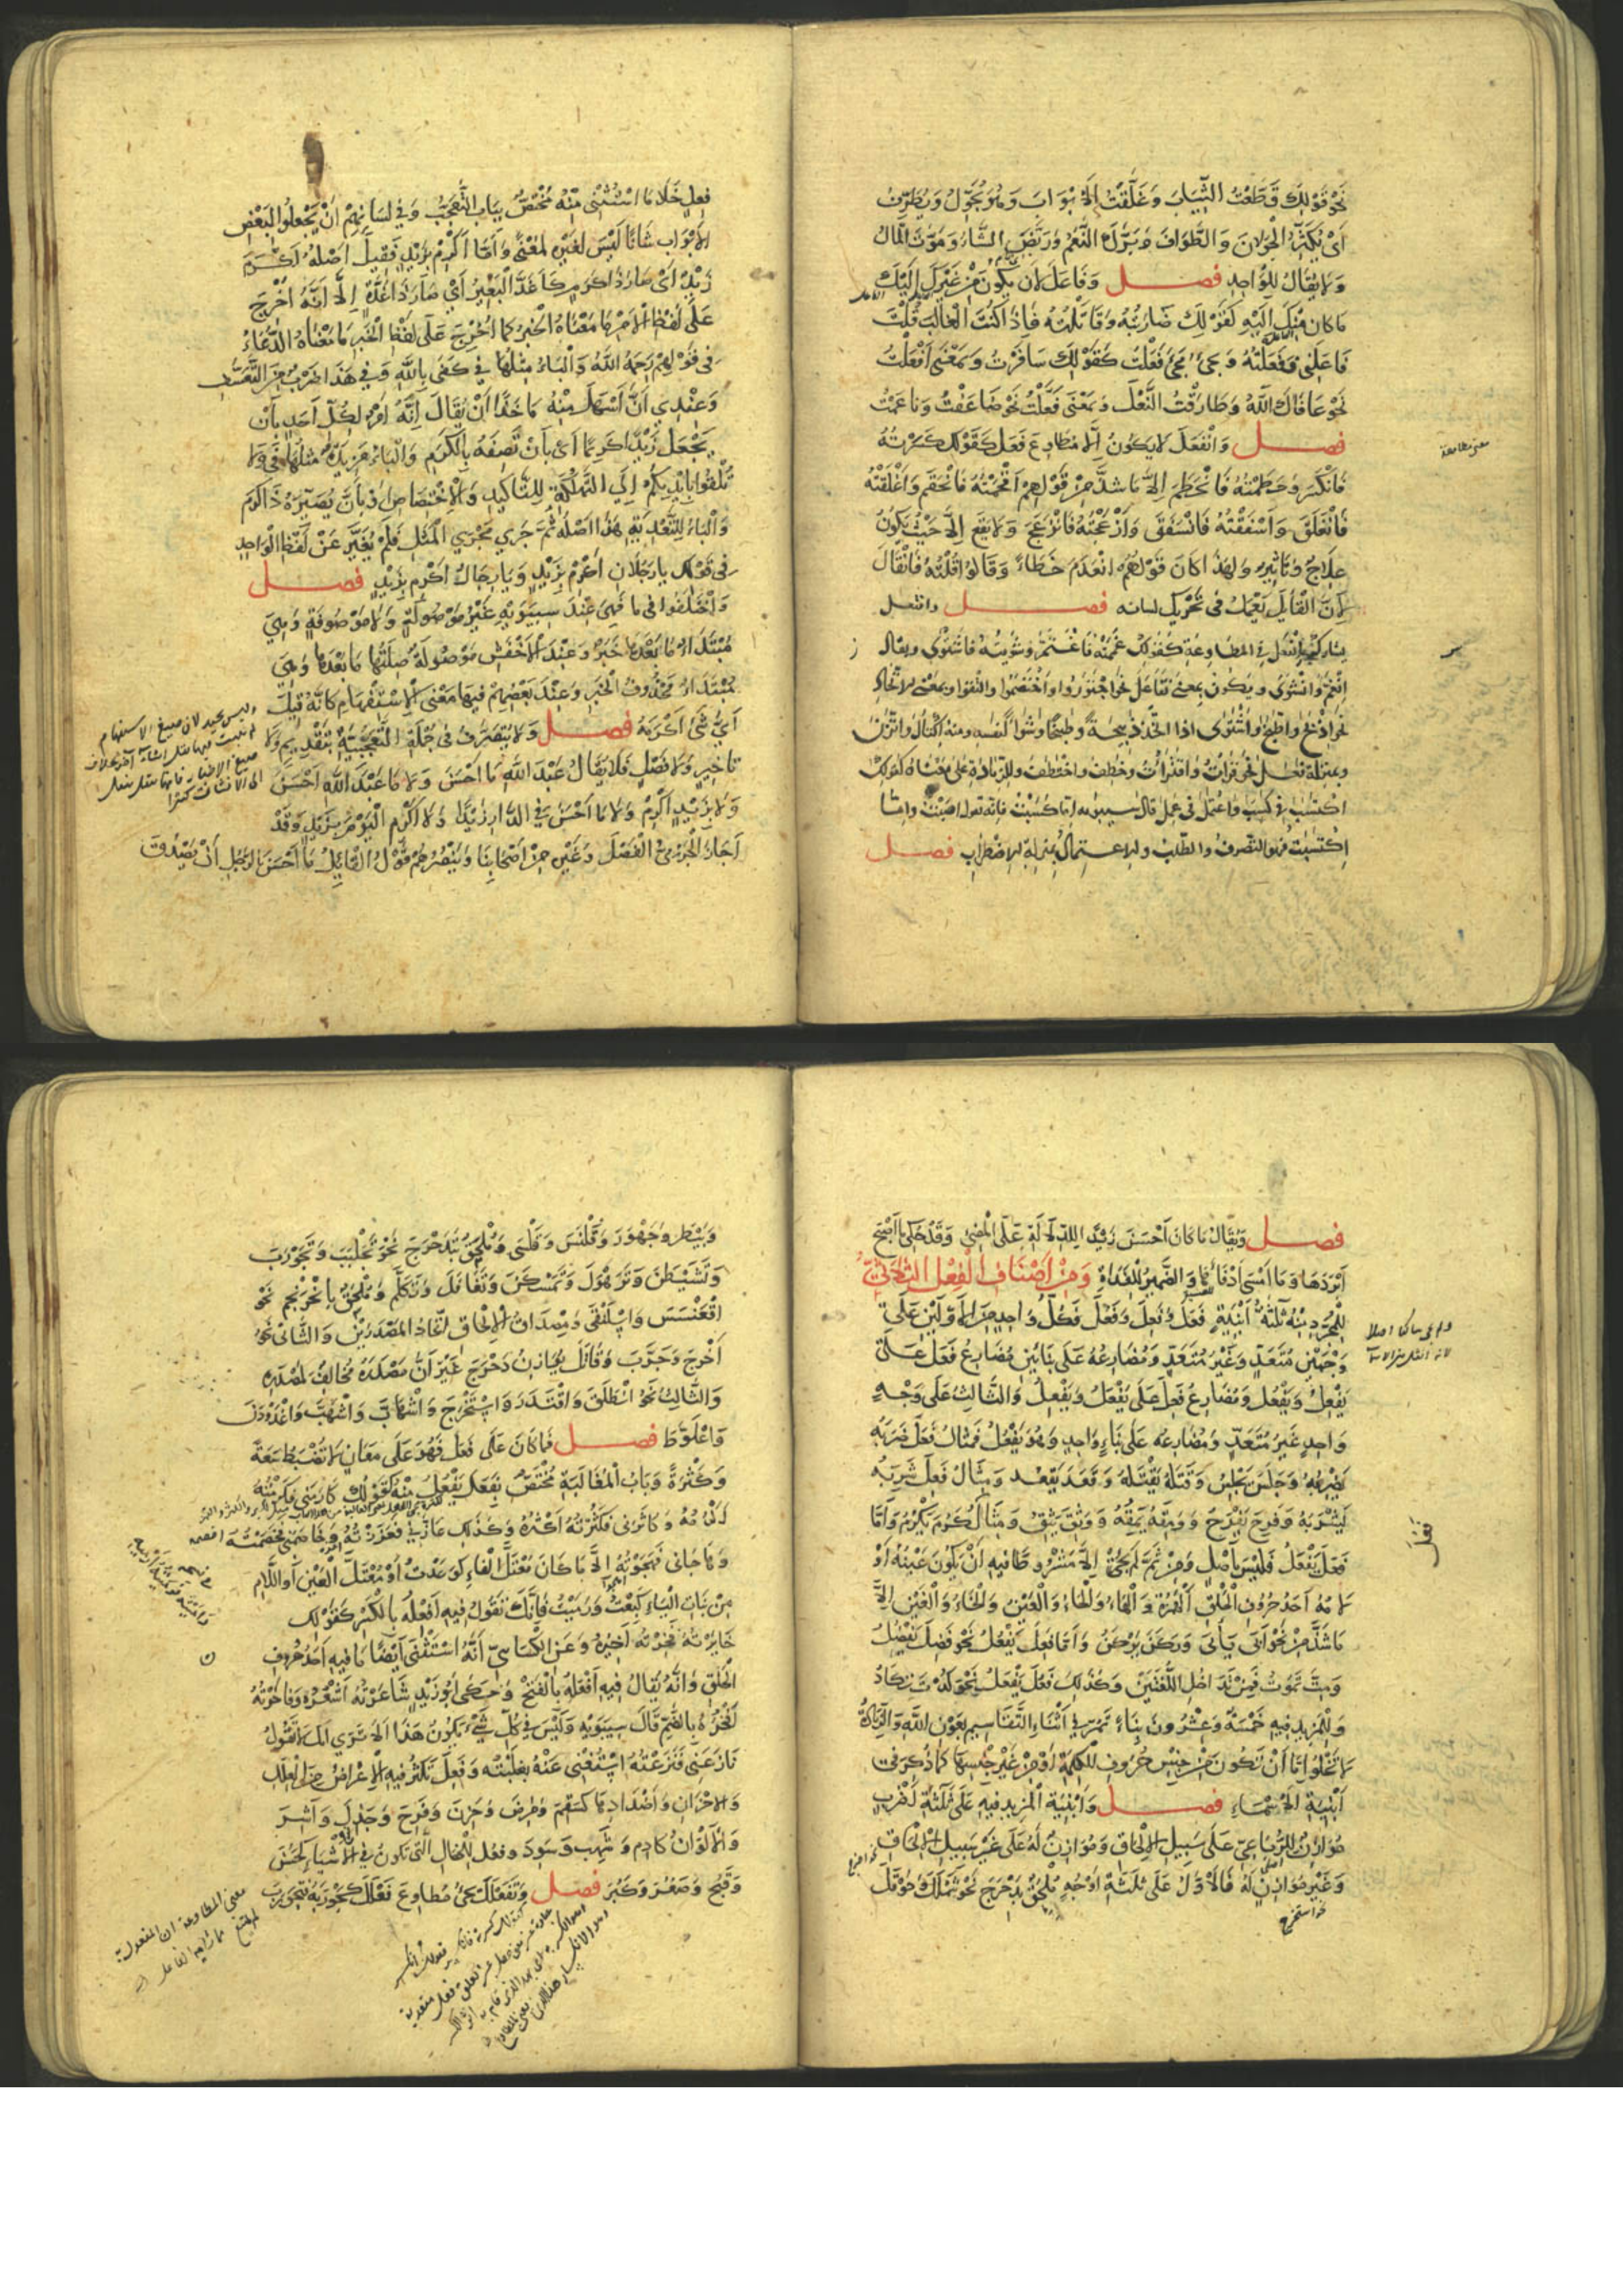 نَحْوَ قَوْلِكَ قَطَّعْتُ الثِّيَابَ وَغَلَّقْتُ الأَبْوَابَ وَهُوَ يُجَوِّلُ وَيُطَوِّفُ
أَيْ يُكْثِرُ الْجَوَلَانَ وَالطَّوَافَ وَبَرَّكَ النَّعَمُ وَرَبَّضَ الشَّاءُ وَمَوَّتَ الْمَالُ
وَلَا يُقَالُ لِلْوَاحِدِ فصل وَفَاعَلَ لأَنْ يَكُونَ مِنْ غَيْرِكَ إِلَيْكَ
مَا كَانَ مِنْكَ إِلَيْهِ كَقَوْلِكَ ضَارَبْتُهُ وَقَاتَلْتُهُ فَإِذَا كُنْتَ الْغَالِبَ قُلْتَ
فَاعَلَنِي فَفَعَلْتُهُ وَيَجِيءُ مَجِيءَ فَعَلْتُ كَقَوْلِكَ سَافَرْتُ وَبِمَعْنَى أَفْعَلْتُ
نَحْوَ عَافَاكَ اللَّهُ وَطَارَقْتُ النَّعْلَ وَبِمَعْنَى فَعَّلْتُ نَحْوَ ضَاعَفْتُ وَنَاعَمْتُ
فصل وَانْفَعَلَ لَا يَكُونُ إِلَّا مُطَاوِعَ فَعَلَ كَقَوْلِكَ كَسَرْتُهُ
فَانْكَسَرَ وَحَطَمْتُهُ فَانْحَطَمَ إِلَّا مَا شَذَّ مِنْ قَوْلِهِمْ أَقْحَمْتُهُ فَانْقَحَمَ وَأَغْلَقْتُهُ
فَانْغَلَقَ وَأَسْفَقْتُهُ فَانْسَفَقَ وَأَزْعَجْتُهُ فَانْزَعَجَ وَلَا يَقَعُ إِلَّا حَيْثُ يَكُونُ
عِلَاجٌ وَتَأْثِيرٌ وَلِهَذَا كَانَ قَوْلُهُمُ انْعَدَمَ خَطَاءً وَقَالُوا قُلْتُهُ فَانْقَالَ
لِأَنَّ الْقَائِلَ يَعْمَلُ فِي تَحْرِيكِ لِسَانِهِ فصل وافتعل
يشارك انفعل في المطاوعة كقولك غممته فاغتم وشويته فاشتوى ويقال
انغم وانشوى ويكون بمعنى تفاعل نحو اجتوروا واختصموا والتقوا وبمعنى الاتخاذ
نحو اذبح واطبخ واشتوى اذا اتخذ ذبيحة وطبيخا وشواء لنفسه ومنه اكتال واتزن
وبمنزلة فعل نحو قرأت واقترأت وخطف واختطف وللزيادة على معناه كقولك
اكتسب في كسب واعتمل في عمل قال سيبويه اما كسبت فانه تقول اصبت واما
اكتسبت فهو التصرف والطلب والاعتمال بمنزلة الاضطراب فصل
فِعْلٍ خَلَا مَا اسْتُثْنِيَ مِنْهُ مُخْتَصٌّ بِبَابِ التَّعَجُّبِ وَفِي لِسَانِهِمْ أَنْ يَجْعَلُوا لِبَعْضِ
الْأَبْوَابِ شَانًا لَيْسَ لِغَيْرِهِ لِمَعْنًى وَأَمَّا أَكْرِمْ بِزَيْدٍ فَقِيلَ أَصْلُهُ أَكْرَمَ
زَيْدٌ أَيْ صَارَ ذَا كَرَمٍ كَأَغَدَّ الْبَعِيرُ أَيْ صَارَ ذَا غُدَّةٍ إِلَّا أَنَّهُ أُخْرِجَ
عَلَى لَفْظِ الْأَمْرِ مَا مَعْنَاهُ الْخَبَرُ كَمَا أُخْرِجَ عَلَى لَفْظِ الْخَبَرِ مَا مَعْنَاهُ الدُّعَاءُ
فِي قَوْلِهِمْ رَحِمَهُ اللَّهُ وَالْبَاءُ مِثْلُهَا فِي كَفَى بِاللَّهِ وَفِي هَذَا ضَرْبٌ مِنَ التَّعَسُّفِ
وَعِنْدِي أَنَّ أَسْهَلَ مِنْهُ مَاخَذًا أَنْ يُقَالَ إِنَّهُ أَمْرٌ لِكُلِّ أَحَدٍ بِأَنْ
يَجْعَلَ زَيْدًا كَرِيمًا أَيْ بِأَنْ تَصِفَهُ بِالْكَرَمِ وَالْبَاءُ مَزِيدَةٌ مِثْلُهَا فِي وَلَا
تُلْقُوا بِأَيْدِيكُمْ إِلَى التَّهْلُكَةِ لِلتَّأْكِيدِ وَالِاخْتِصَاصِ أَوْ بِأَنْ يُصَيِّرَهُ ذَا كَرَمٍ
وَالْبَاءُ لِلتَّعْدِيَةِ هَذَا أَصْلُهُ ثُمَّ جَرَى مَجْرَى الْمَثَلِ فَلَمْ يُغَيَّرْ عَنْ لَفْظِ الْوَاحِدِ
فِي قَوْلِكَ يَا رَجُلَانِ أَكْرِمْ بِزَيْدٍ وَيَا رِجَالُ أَكْرِمْ بِزَيْدٍ فصل
وَاخْتَلَفُوا فِي مَا فَهِيَ عِنْدَ سِيبَوَيْهِ غَيْرُ مَوْصُولَةٍ وَلَا مَوْصُوفَةٍ وَهِيَ
مُبْتَدَأٌ مَا بَعْدَهُ خَبَرٌ وَعِنْدَ الْأَخْفَشِ مَوْصُولَةٌ صِلَتُهَا مَا بَعْدَهَا وَهِيَ
مُبْتَدَأٌ مَحْذُوفُ الْخَبَرِ وَعِنْدَ بَعْضِهِمْ فِيهَا مَعْنَى الِاسْتِفْهَامِ كَأَنَّهُ قِيلَ
أَيُّ شَيْءٍ أَكْرَمَهُ فصل وَلَا يُتَصَرَّفُ فِي جُمْلَةِ التَّعَجُّبِيَّةِ بِتَقْدِيمٍ وَلَا
تَاخِيرٍ وَلَا فَصْلٍ فَلَا يُقَالُ عَبْدَ اللَّهِ مَا أَحْسَنَ وَلَا مَا عَبْدَ اللَّهِ أَحْسَنَ
وَلَا بِزَيْدٍ أَكْرِمْ وَلَا مَا أَحْسَنَ فِي الدَّارِ زَيْدًا وَلَا أَكْرِمِ الْيَوْمَ بِزَيْدٍ وَقَدْ
أَجَازَ الْجَرْمِيُّ الْفَصْلَ وَغَيْرُهُ مِنْ أَصْحَابِنَا وَيَنْصُرُهُمْ قَوْلُ الْقَائِلِ مَا أَحْسَنَ بِالرَّجُلِ أَنْ يَصْدُقَ
فصل وَيُقَالُ مَا كَانَ أَحْسَنَ زَيْدًا لِلدَّلَالَةِ عَلَى الْمُضِيِّ وَقَدْ حُكِيَ مَا أَصْبَحَ
أَبْرَدَهَا وَمَا أَمْسَى أَدْفَأَهَا وَالضَّمِيرُ لِلْغَدَاةِ وَمِنْ أَصْنَافِ الْفِعْلِ الثُّلَاثِيُّ
لِلْمُجَرَّدِ مِنْهُ ثَلَثَةُ أَبْنِيَةٍ فَعَلَ وَفَعِلَ وَفَعُلَ فَكُلُّ وَاحِدٍ مِنَ الْأَوَّلَيْنِ عَلَى
وَجْهَيْنِ مُتَعَدٍّ وَغَيْرُ مُتَعَدٍّ وَمُضَارِعُهُ عَلَى بِنَائَيْنِ مُضَارِعُ فَعَلَ عَلَى
يَفْعِلُ وَيَفْعُلُ وَمُضَارِعُ فَعِلَ عَلَى يَفْعَلُ وَيَفْعِلُ وَالثَّالِثُ عَلَى وَجْهٍ
وَاحِدٍ غَيْرُ مُتَعَدٍّ وَمُضَارِعُهُ عَلَى بِنَاءٍ وَاحِدٍ وَهُوَ يَفْعُلُ فَمِثَالُ فَعَلَ ضَرَبَهُ
يَضْرِبُهُ وَجَلَسَ يَجْلِسُ وَقَتَلَهُ يَقْتُلُهُ وَقَعَدَ يَقْعُدُ وَمِثَالُ فَعِلَ شَرِبَهُ
يَشْرَبُهُ وَفَرِحَ يَفْرَحُ وَوَمِقَهُ يَمِقُهُ وَوَثِقَ يَثِقُ وَمِثَالُ فَعُلَ كَرُمَ يَكْرُمُ وَأَمَّا
فَعَلَ يَفْعَلُ فَلَيْسَ بِأَصْلٍ وَمِنْ ثَمَّ لَمْ يَجِئْ إِلَّا مَشْرُوطًا فِيهِ أَنْ يَكُونَ عَيْنُهُ أَوْ
لَامُهُ أَحَدَ حُرُوفِ الْحَلْقِ الْهَمْزَةُ وَالْهَاءُ وَالْحَاءُ وَالْعَيْنُ وَالْخَاءُ وَالْغَيْنُ إِلَّا
مَا شَذَّ مِنْ نَحْوِ أَبَى يَأْبَى وَرَكَنَ يَرْكَنُ وَأَمَّا فَعِلَ يَفْعُلُ نَحْوَ فَضِلَ يَفْضُلُ
وَمِتَّ تَمُوتُ فَمِنْ تَدَاخُلِ اللُّغَتَيْنِ وَكَذَلِكَ فَعُلَ يَفْعَلُ نَحْوَ كُدْتَ تَكَادُ
وَلِلْمَزِيدِ فِيهِ خَمْسَةٌ وَعِشْرُونَ بِنَاءً تَمُرُّ فِي أَثْنَاءِ التَّقَاسِيمِ بِعَوْنِ اللَّهِ وَالزِّيَادَةُ
لَا تَخْلُوا إِمَّا أَنْ تَكُونَ مِنْ جِنْسِ حُرُوفِ الْكَلِمَةِ أَوْ مِنْ غَيْرِ جِنْسِهَا كَمَا ذُكِرَ فِي
أَبْنِيَةِ الْأَسْمَاءِ فصل وَأَبْنِيَةُ الْمَزِيدِ فِيهِ عَلَى ثَلَثَةِ أَضْرُبٍ
مُوَازِنٌ لِلرُّبَاعِيِّ عَلَى سَبِيلِ الْإِلْحَاقِ وَمُوَازِنٌ لَهُ عَلَى غَيْرِ سَبِيلِ الْإِلْحَاقِ
وَغَيْرُ مُوَازِنٍ لَهُ فَالْأَوَّلُ عَلَى ثَلَثَةِ أَوْجُهٍ مُلْحَقٌ بِدَحْرَجَ نَحْوَ شَمْلَلَ وَحَوْقَلَ
وَبَيْطَرَ وَجَهْوَرَ وَقَلْنَسَ وَقَلْسَى وَمُلْحَقٌ بِتَدَحْرَجَ نَحْوَ تَجَلْبَبَ وَتَجَوْرَبَ
وَتَشَيْطَنَ وَتَرَهْوَكَ وَتَمَسْكَنَ وَتَغَافَلَ وَتَكَلَّمَ وَمُلْحَقٌ بِاحْرَنْجَمَ نَحْوَ
اقْعَنْسَسَ وَاسْلَنْقَى وَمِصْدَاقُ الْإِلْحَاقِ اتِّحَادُ الْمَصْدَرَيْنِ وَالثَّانِي نَحْوَ
أَخْرَجَ وَجَرَّبَ وَقَاتَلَ يُوَازِنُ دَحْرَجَ غَيْرَ أَنَّ مَصْدَرَهُ مُخَالِفٌ لِمَصْدَرِهِ
وَالثَّالِثُ نَحْوَ انْطَلَقَ وَاقْتَدَرَ وَاسْتَخْرَجَ وَاشْهَابَّ وَاشْهَبَّ وَاغْدَوْدَنَ
وَاعْلَوَّطَ فصل فَمَا كَانَ عَلَى فَعَلَ فَهُوَ عَلَى مَعَانٍ لَا تُضْبَطُ سَعَةً
وَكَثْرَةً وَبَابُ الْمُغَالَبَةِ مُخْتَصٌّ بِفَعَلَ يَفْعُلُ مِنْهُ كَقَوْلِكَ كَارَمَنِي فَكَرَمْتُهُ
أَكْرُمُهُ وَكَاثَرَنِي فَكَثَرْتُهُ أَكْثُرُهُ وَكَذَلِكَ عَازَّنِي فَعَزَزْتُهُ وَخَاصَمَنِي فَخَصَمْتُهُ
وَهَاجَانِي فَهَجَوْتُهُ إِلَّا مَا كَانَ مُعْتَلَّ الْفَاءِ كَوَعَدْتُ أَوْ مُعْتَلَّ الْعَيْنِ أَوِ اللَّامِ
مِنْ بَنَاتِ الْيَاءِ كَبِعْتُ وَرَمَيْتُ فَإِنَّكَ تَقُولُ فِيهِ أَفْعِلُهُ بِالْكَسْرِ كَقَوْلِكَ
خَايَرْتُهُ فَخِرْتُهُ أَخِيرُهُ وَعَنِ الْكِسَائِيِّ أَنَّهُ اسْتَثْنَى أَيْضًا مَا فِيهِ أَحَدُ حُرُوفِ
الْحَلْقِ وَأَنَّهُ يُقَالُ فِيهِ أَفْعَلُهُ بِالْفَتْحِ وَحَكَى أَبُو زَيْدٍ شَاعَرْتُهُ أَشْعُرُهُ وَفَاخَرْتُهُ
أَفْخُرُهُ بِالضَّمِّ قَالَ سِيبَوَيْهِ وَلَيْسَ فِي كُلِّ شَيْءٍ يَكُونُ هَذَا أَلَا تَرَى أَنَّكَ لَا تَقُولُ
نَازَعَنِي فَنَزَعْتُهُ اسْتُغْنِيَ عَنْهُ بِغَلَبْتُهُ وَفَعِلَ تَكْثُرُ فِيهِ الْأَعْرَاضُ مِنَ الْعِلَلِ
وَالْأَحْزَانِ وَأَضْدَادِهَا كَسَقِمَ وَمَرِضَ وَحَزِنَ وَفَرِحَ وَجَذِلَ وَأَشِرَ
وَالْأَلْوَانُ كَأَدِمَ وَشَهِبَ وَسَوِدَ وَفَعُلَ لِلْخِصَالِ الَّتِي تَكُونُ فِي الْأَشْيَاءِ كَحَسُنَ
وَقَبُحَ وَصَغُرَ وَكَبُرَ فصل وَتَفَعْلَلَ يَجِيءُ مُطَاوِعَ فَعْلَلَ كَجَوْرَبَهُ فَتَجَوْرَبَ